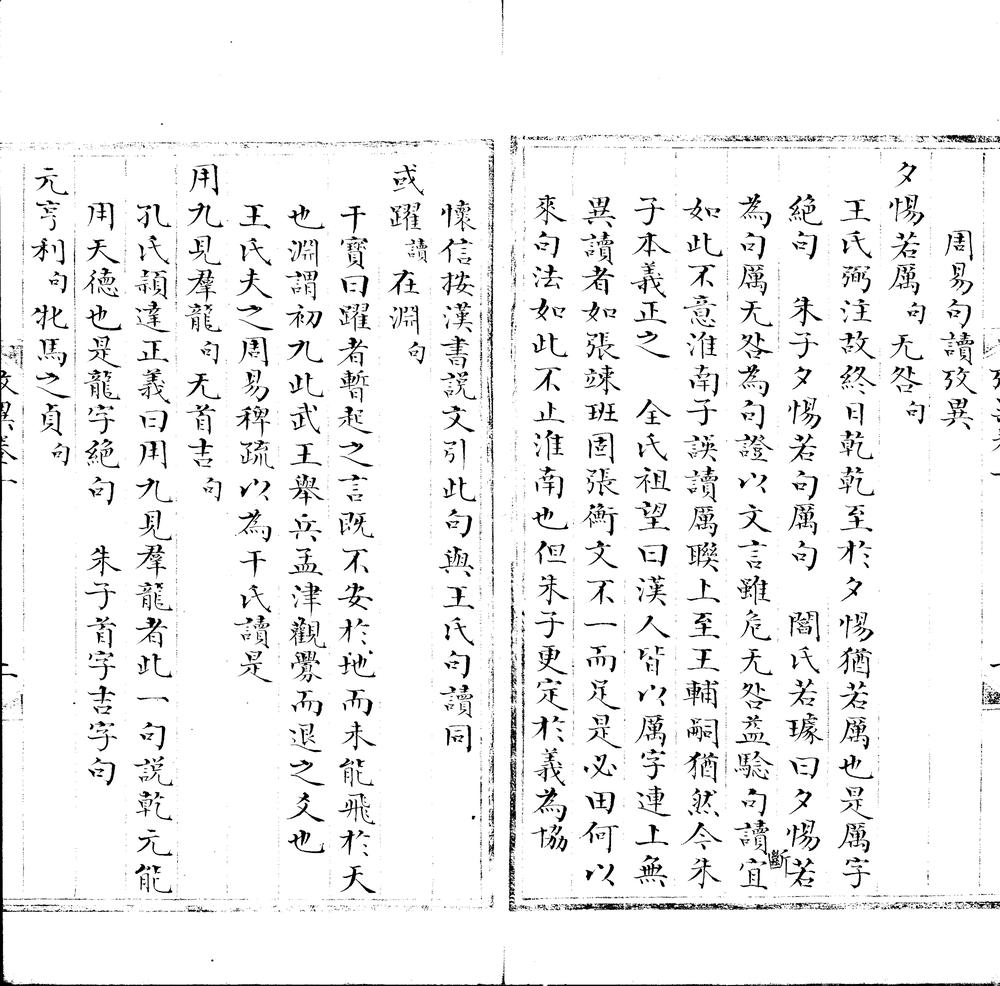 周易句讀攷異
夕惕若厲句无咎句
王氏弼注故終日乾乾至於夕惕猶若厲也是厲字
絕句　朱子夕惕若句厲句　閻氏若璩曰夕惕若斷
為句厲无咎為句證以文言雖危无咎益驗句讀宜
如此不意淮南子誤讀厲聯上至王輔嗣猶然今朱
子本義正之　全氏祖望曰漢人皆以厲字連上無
異讀者如張竦班固張衡文不一而足是必田何以
來句法如此不止淮南也但朱子更定於義為協
懷信按漢書說文引此句與王氏句讀同
或躍讀在淵句
干寶曰躍者暫起之言既不安於地而未能飛於天
也淵謂初九此武王舉兵孟津觀釁而退之爻也
王氏夫之周易稗疏以為干氏讀是
用九見羣龍句无首吉句
孔氏穎達正義曰用九見羣龍者此一句說乾元能
用天德也是龍字絕句　朱子首字吉字句
元亨利句牝馬之貞句